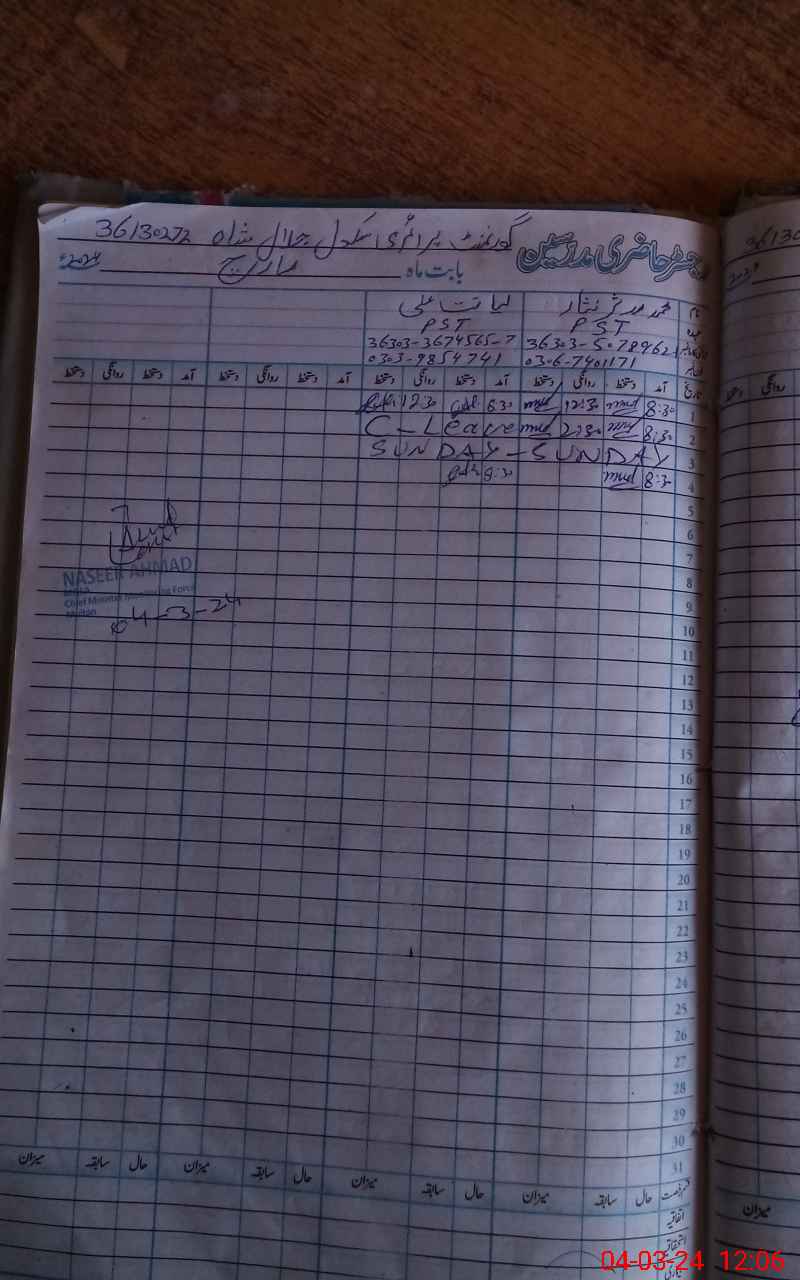 رجسٹر حاضری مدرسین گورنمنٹ پرائمری سکول جلال شاہ 36130272
بابت ماہ مارچ 2024ء
نام محمد مدثر نثار لیاقت علی
عہدہ PST PST
36303-3674565-7
0306-7401171 0303-9854741
تاریخ آمد دستخط روانگی دستخط آمد دستخط روانگی دستخط آمد دستخط روانگی دستخط آمد دستخط روانگی دستخط
1 8:30 12:30 8:30 12:30
2 8:30 12:30 C-Leave
3 SUNDAY-SUNDAY
4 8:30 8:30
5
6
7
NASEER AHMAD
8
Chief Minister Monitoring Force
9
Multan
04-3-24
10
11
12
13
14
15
16
17
18
19
20
21
22
23
24
25
26
27
28
29
30
31
قسم رخصت حال سابقہ میزان حال سابقہ میزان حال سابقہ میزان حال سابقہ میزان
اتفاقیہ
استحقاقیہ
میزان
روانگی
04-03-24 12:06